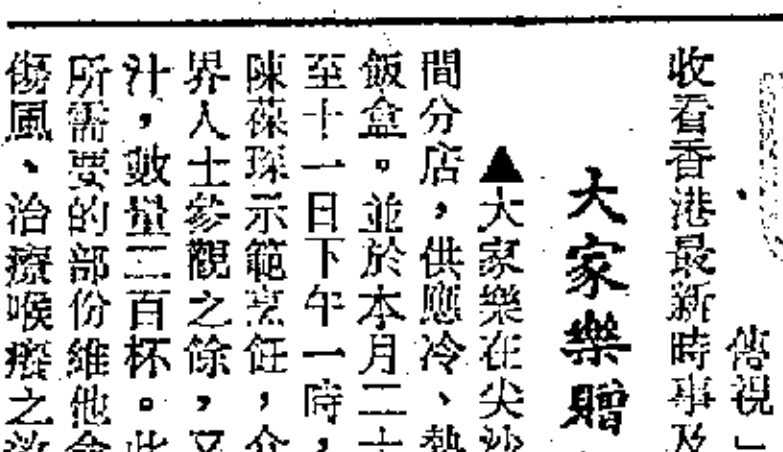 、傳視」
收看香港最新時事及
大家樂贈
▲大家樂在尖沙
間分店，供應冷、熱
飯盒。並於本月二十
至十一日下午一時，
陳葆琛示範烹飪，介
界人士參觀之餘，又
汁，數量二百杯。此
所需要的部份維他命
傷風、治療喉癢之